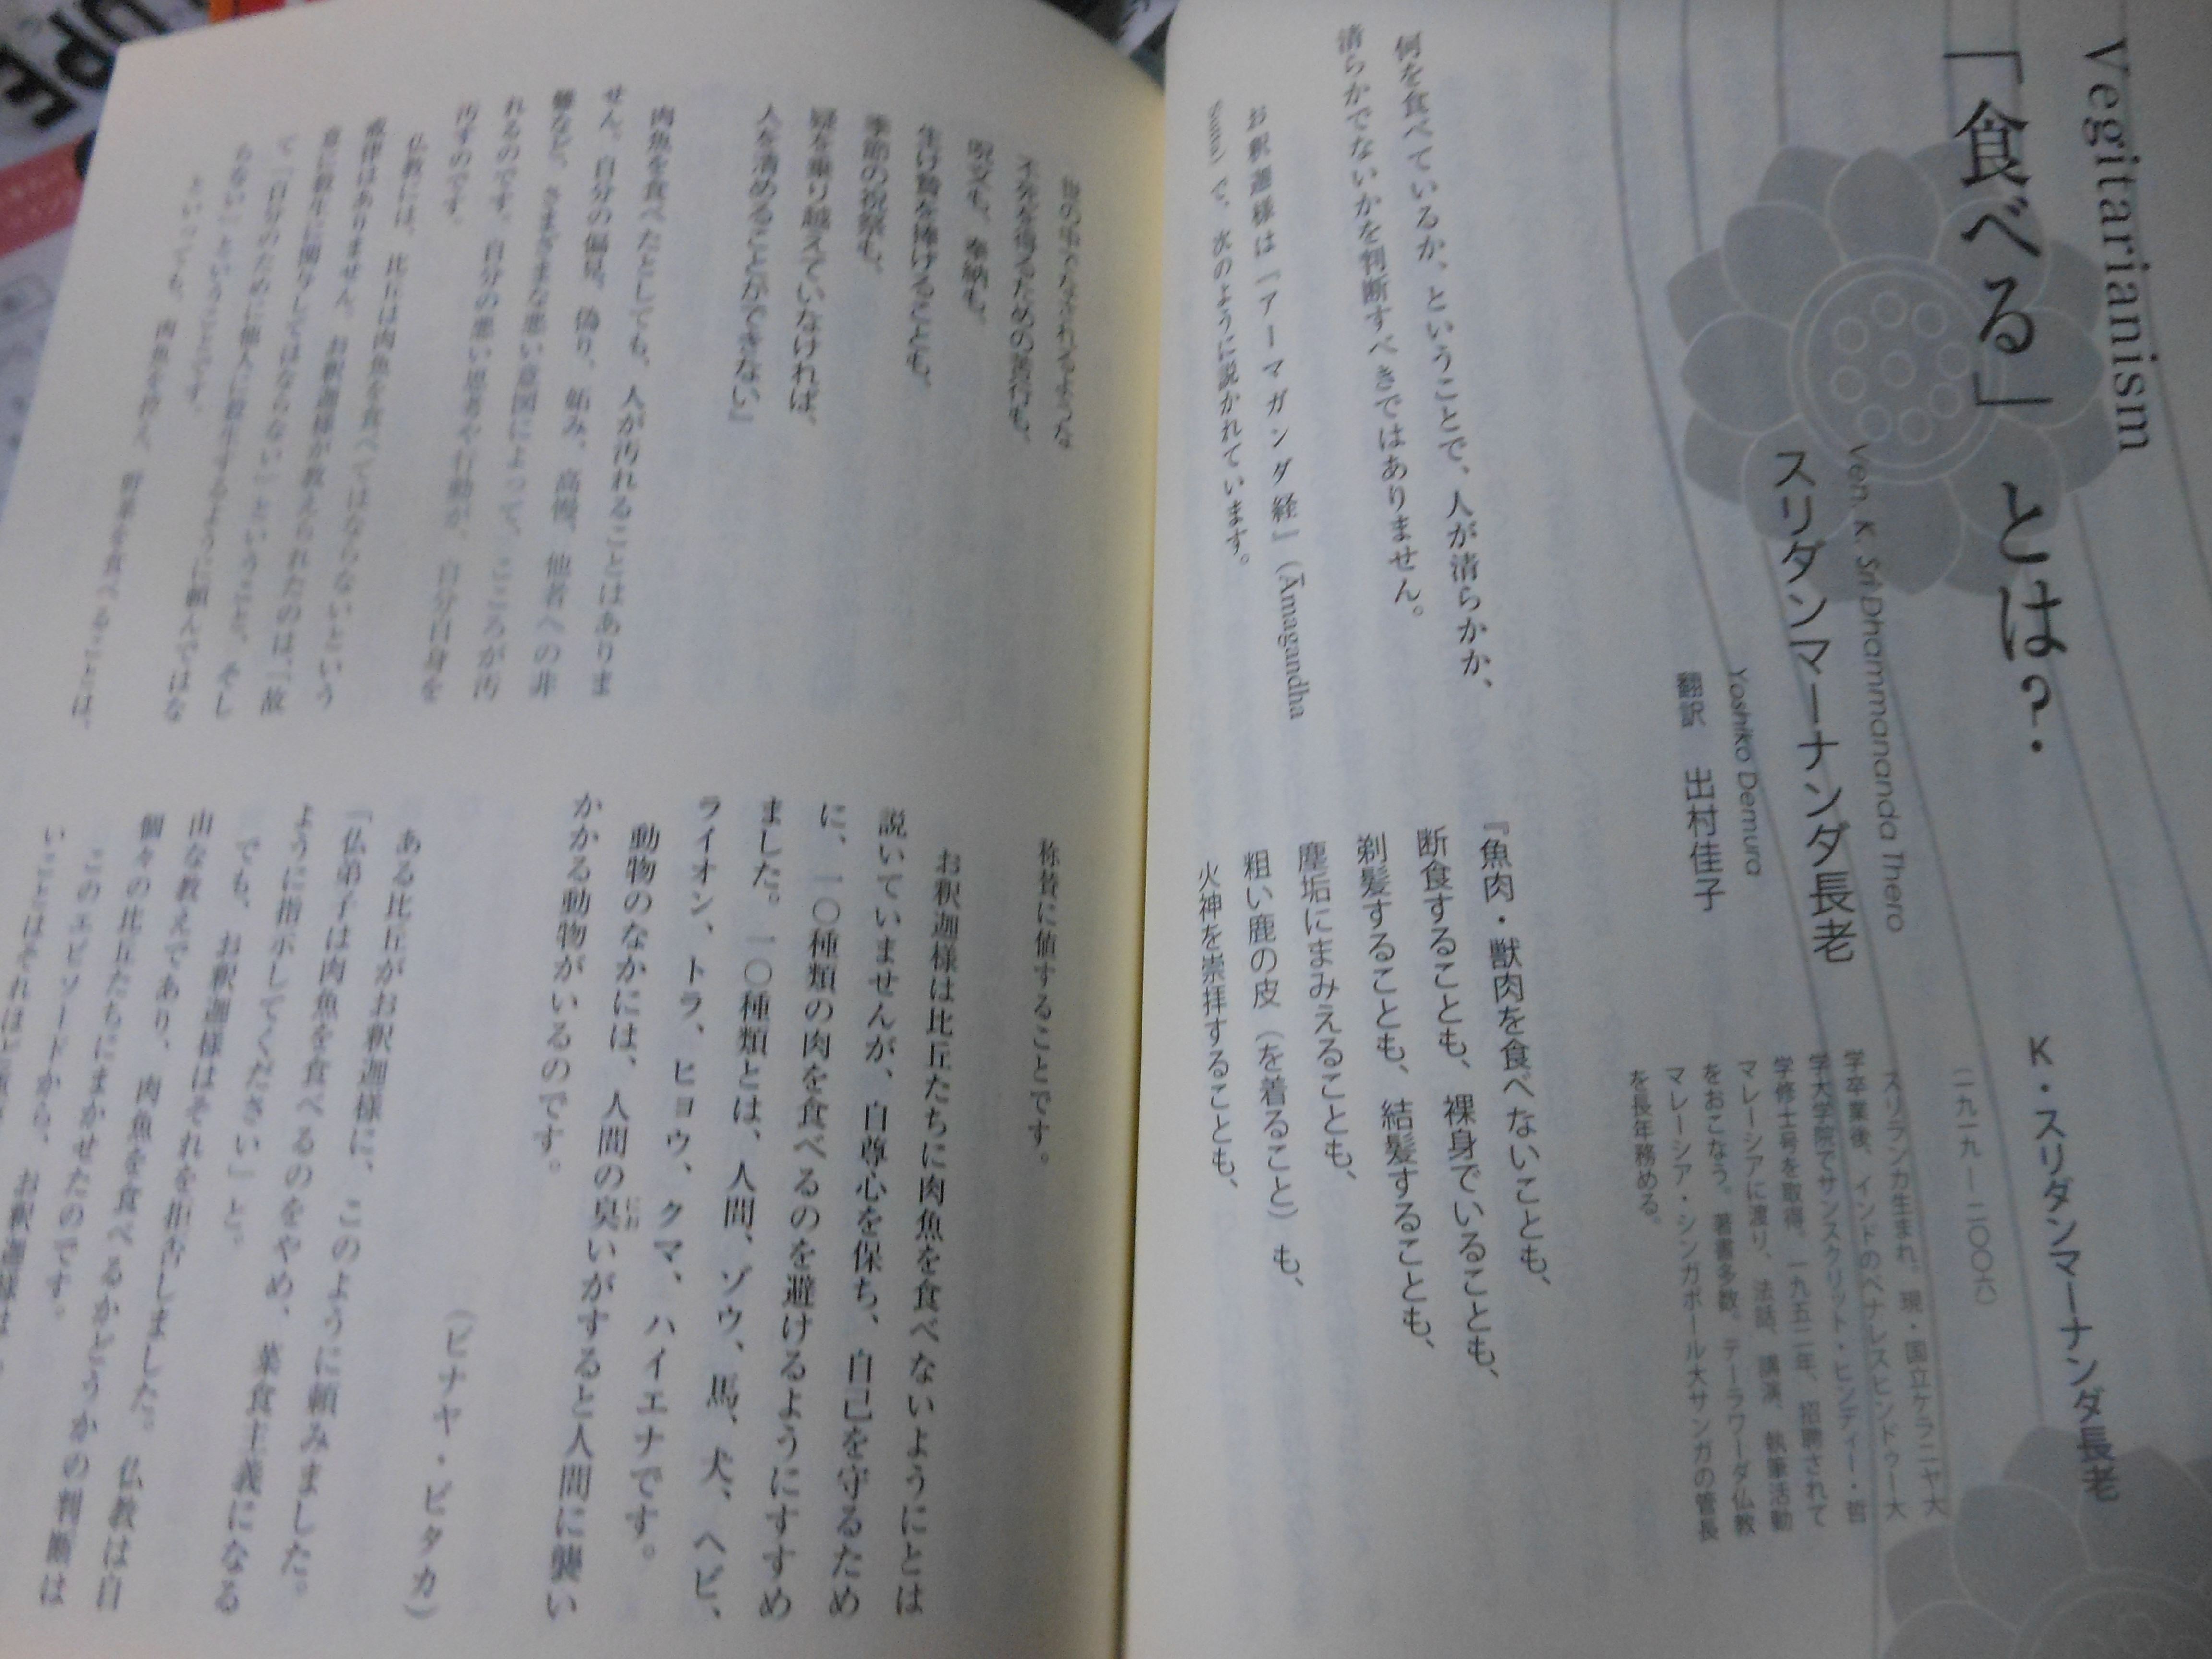 Vegitarianism
「食べる」とは?
Ven. K. Sri Dhammananda Thero
スリダンマーナンダ長老
Yoshiko Demura
翻訳 出村佳子
K・スリダンマーナンダ長老
(一九一九―二〇〇六)
スリランカ生まれ。現・国立ケラニヤ大
学卒業後、インドのベナレスヒンドゥー大
学大学院でサンスクリット・ヒンディー・哲
学修士号を取得。一九五二年、招聘されて
マレーシアに渡り、法話、講演、執筆活動
をおこなう。著書多数。テーラワーダ仏教
マレーシア・シンガポール大サンガの管長
を長年務める。
何を食べているか、ということで、人が清らかか、
清らかでないかを判断すべきではありません。
お釈迦様は『アーマガンダ経』(Āmagandha
Sutta)で、次のように説かれています。
『魚肉・獣肉を食べないことも、
断食することも、裸身でいることも、
剃髪することも、結髪することも、
塵垢にまみえることも、
粗い鹿の皮(を着ること)も、
火神を崇拝することも、
不死を得るための苦行も、
呪文も、奉納も、
生け贄を捧げることも、
季節の祝祭も、
疑を乗り越えていなければ、
人を清めることができない』
肉魚を食べたとしても、人が汚れることはありま
せん。自分の偏見、偽り、妬み、高慢、他者への非
難など、さまざまな悪い意図によって、こころが汚
れるのです。自分の悪い思考や行動が、自分自身を
汚すのです。
仏教には、比丘は肉魚を食べてはならないという
戒律はありません。お釈迦様が教えられたのは、「故
意に殺生に関与してはならない」ということと、そし
て「自分のために他人に殺生するように頼んではな
らない」ということです。
といっても、肉魚を控え、野菜を食べることは、
称賛に値することです。
お釈迦様は比丘たちに肉魚を食べないようにとは
説いていませんが、自尊心を保ち、自己を守るため
に、一〇種類の肉を食べるのを避けるようにすすめ
ました。一〇種類とは、人間、ゾウ、馬、犬、ヘビ、
ライオン、トラ、ヒョウ、クマ、ハイエナです。
動物のなかには、人間の臭いがすると人間に襲い
にお
かかる動物がいるのです。
(ビナヤ・ピタカ)
ある比丘がお釈迦様に、このように頼みました。
「仏弟子は肉魚を食べるのをやめ、菜食主義になる
ように指示してください」と。
でも、お釈迦様はそれを拒否しました。仏教は自
由な教えであり、肉魚を食べるかどうかの判断は
個々の比丘たちにまかせたのです。
このエピソードから、お釈迦様は